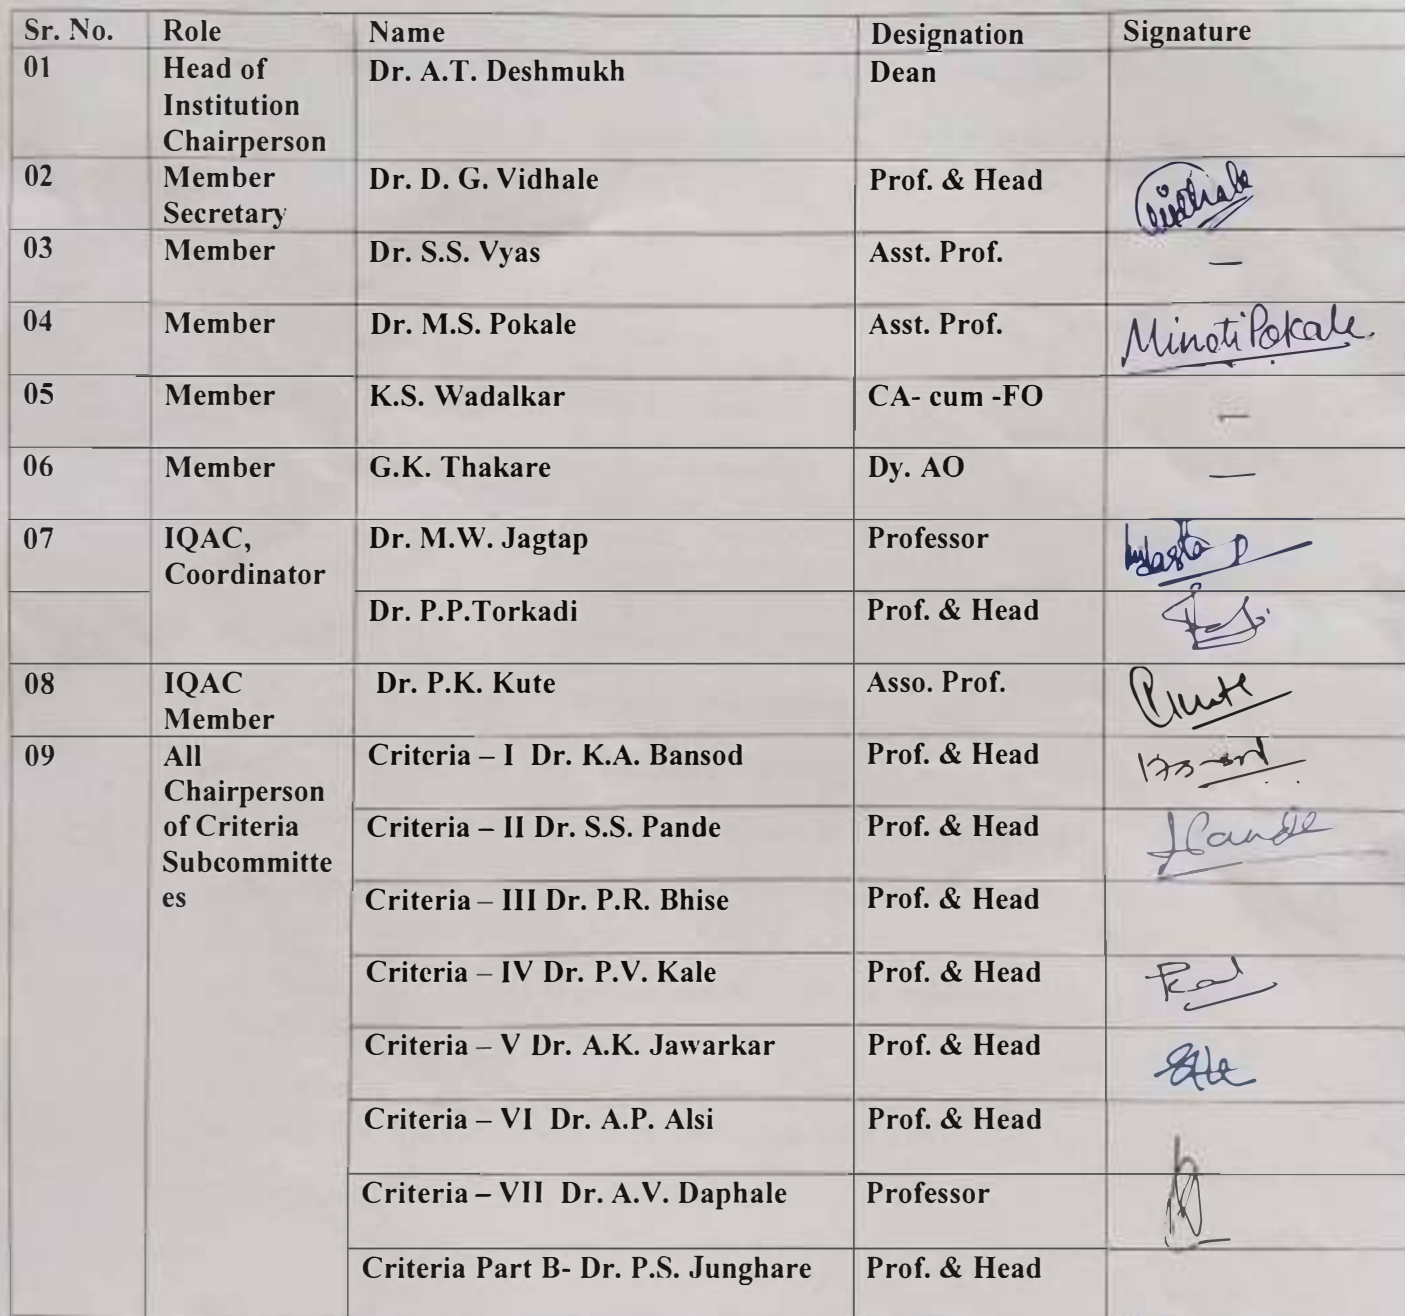 Sr. No. Role Name Designation Signature
01 Head of Institution Chairperson Dr. A.T. Deshmukh Dean
02 Member Secretary Dr. D. G. Vidhale Prof. & Head
03 Member Dr. S.S. Vyas Asst. Prof. —
04 Member Dr. M.S. Pokale Asst. Prof. Minoti Pokale.
05 Member K.S. Wadalkar CA- cum -FO —
06 Member G.K. Thakare Dy. AO —
07 IQAC, Coordinator Dr. M.W. Jagtap Professor
Dr. P.P.Torkadi Prof. & Head
08 IQAC Member Dr. P.K. Kute Asso. Prof.
09 All Chairperson of Criteria Subcommittees Criteria – I Dr. K.A. Bansod Prof. & Head
Criteria – II Dr. S.S. Pande Prof. & Head
Criteria – III Dr. P.R. Bhise Prof. & Head
Criteria – IV Dr. P.V. Kale Prof. & Head
Criteria – V Dr. A.K. Jawarkar Prof. & Head
Criteria – VI Dr. A.P. Alsi Prof. & Head
Criteria – VII Dr. A.V. Daphale Professor
Criteria Part B- Dr. P.S. Junghare Prof. & Head